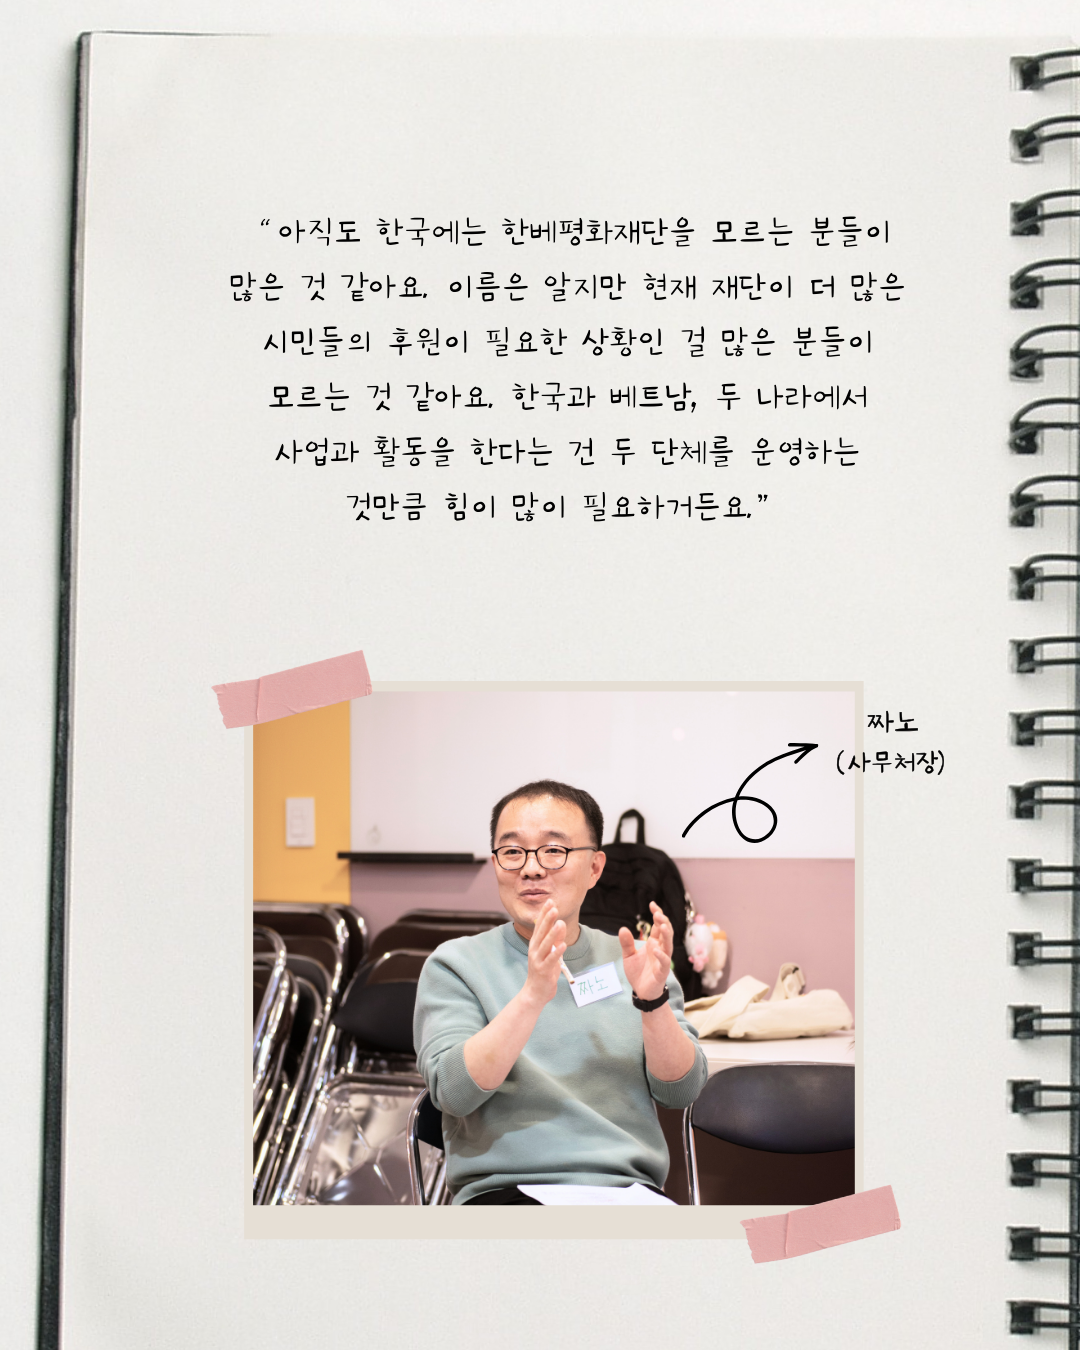 “아직도 한국에는 한베평화재단을 모르는 분들이
많은 것 같아요. 이름은 알지만 현재 재단이 더 많은
시민들의 후원이 필요한 상황인 걸 많은 분들이
모르는 것 같아요. 한국과 베트남, 두 나라에서
사업과 활동을 한다는 건 두 단체를 운영하는
것만큼 힘이 많이 필요하거든요.”
짜노
(사무처장)
짜노